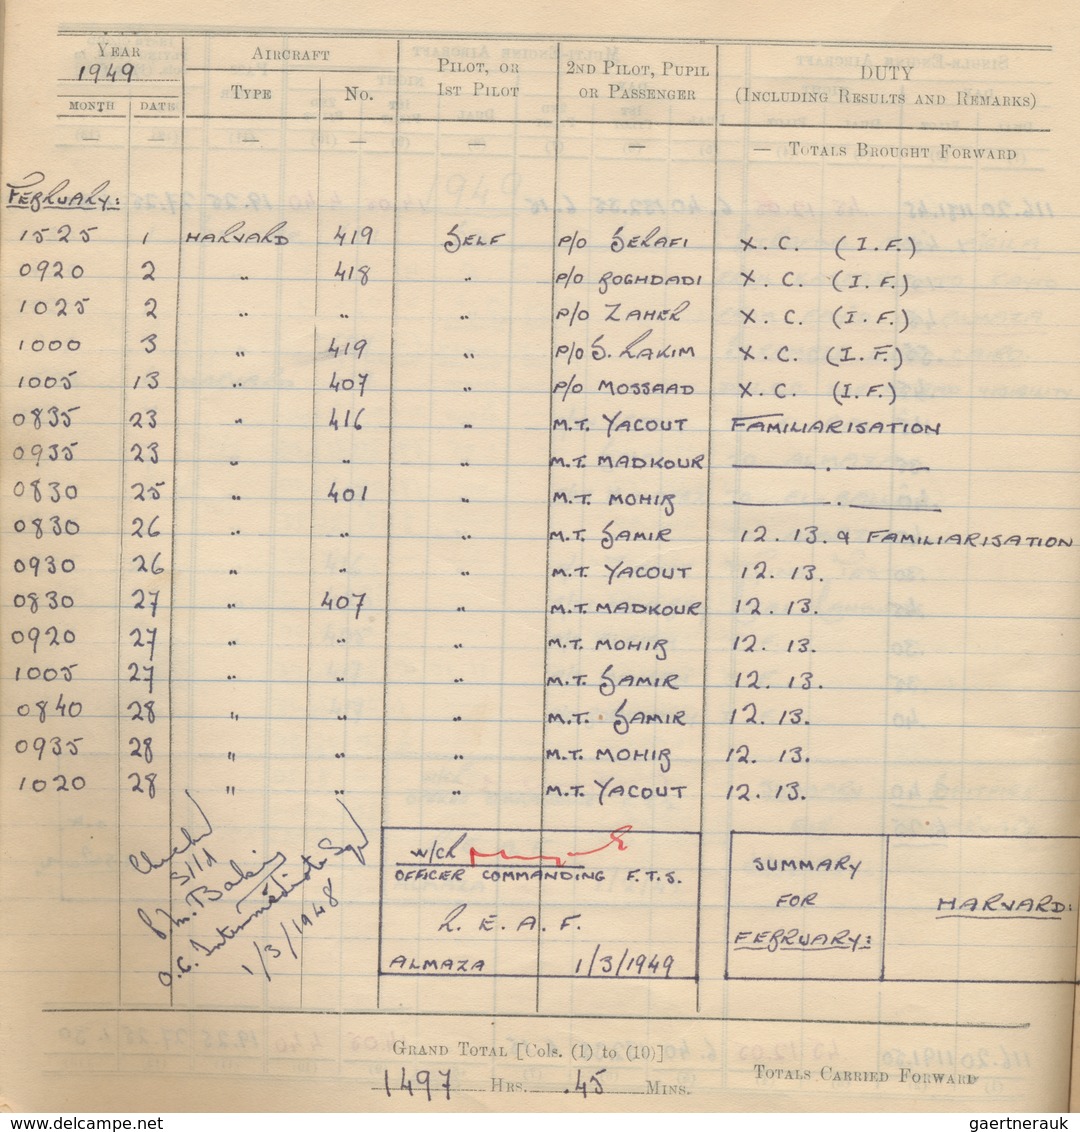 YEAR AIRCRAFT PILOT, OR 2ND PILOT, PUPIL DUTY
1949 1ST PILOT OR PASSENGER (INCLUDING RESULTS AND REMARKS)
MONTH DATE TYPE NO.
— — — — — — — TOTALS BROUGHT FORWARD
FEBRUARY:
1525 1 HARVARD 419 SELF P/O SERAFI X. C. (I. F.)
0920 2 " 418 " P/O BOGHDADI X. C. (I. F.)
1025 2 " " " P/O ZAHER X. C. (I. F.)
1000 3 " 419 " P/O S. HAKIM X. C. (I. F.)
1005 13 " 407 " P/O MOSSAAD X. C. (I. F.)
0835 23 " 416 " M.T. YACOUT FAMILIARISATION
0935 23 " " " M.T. MADKOUR — . —
0830 25 " 401 " M.T. MOHIB — . —
0830 26 " " " M.T. SAMIR 12. 13. & FAMILIARISATION
0930 26 " " " M.T. YACOUT 12. 13.
0830 27 " 407 " M.T. MADKOUR 12. 13.
0920 27 " " " M.T. MOHIB 12. 13.
1005 27 " " " M.T. SAMIR 12. 13.
0840 28 " " " M.T. SAMIR 12. 13.
0935 28 " " " M.T. MOHIB 12. 13.
1020 28 " " " M.T. YACOUT 12. 13.
O.C. Intermediate Sqd
1/3/1948
W/CR
OFFICER COMMANDING F.T.S.
R. E. A. F.
ALMAZA 1/3/1949
SUMMARY
FOR
FEBRUARY:
HARVARD:
GRAND TOTAL [Cols. (1) to (10)]
1497 HRS. .45 MINS.
TOTALS CARRIED FORWARD
www.delcampe.net
gaertnerauk